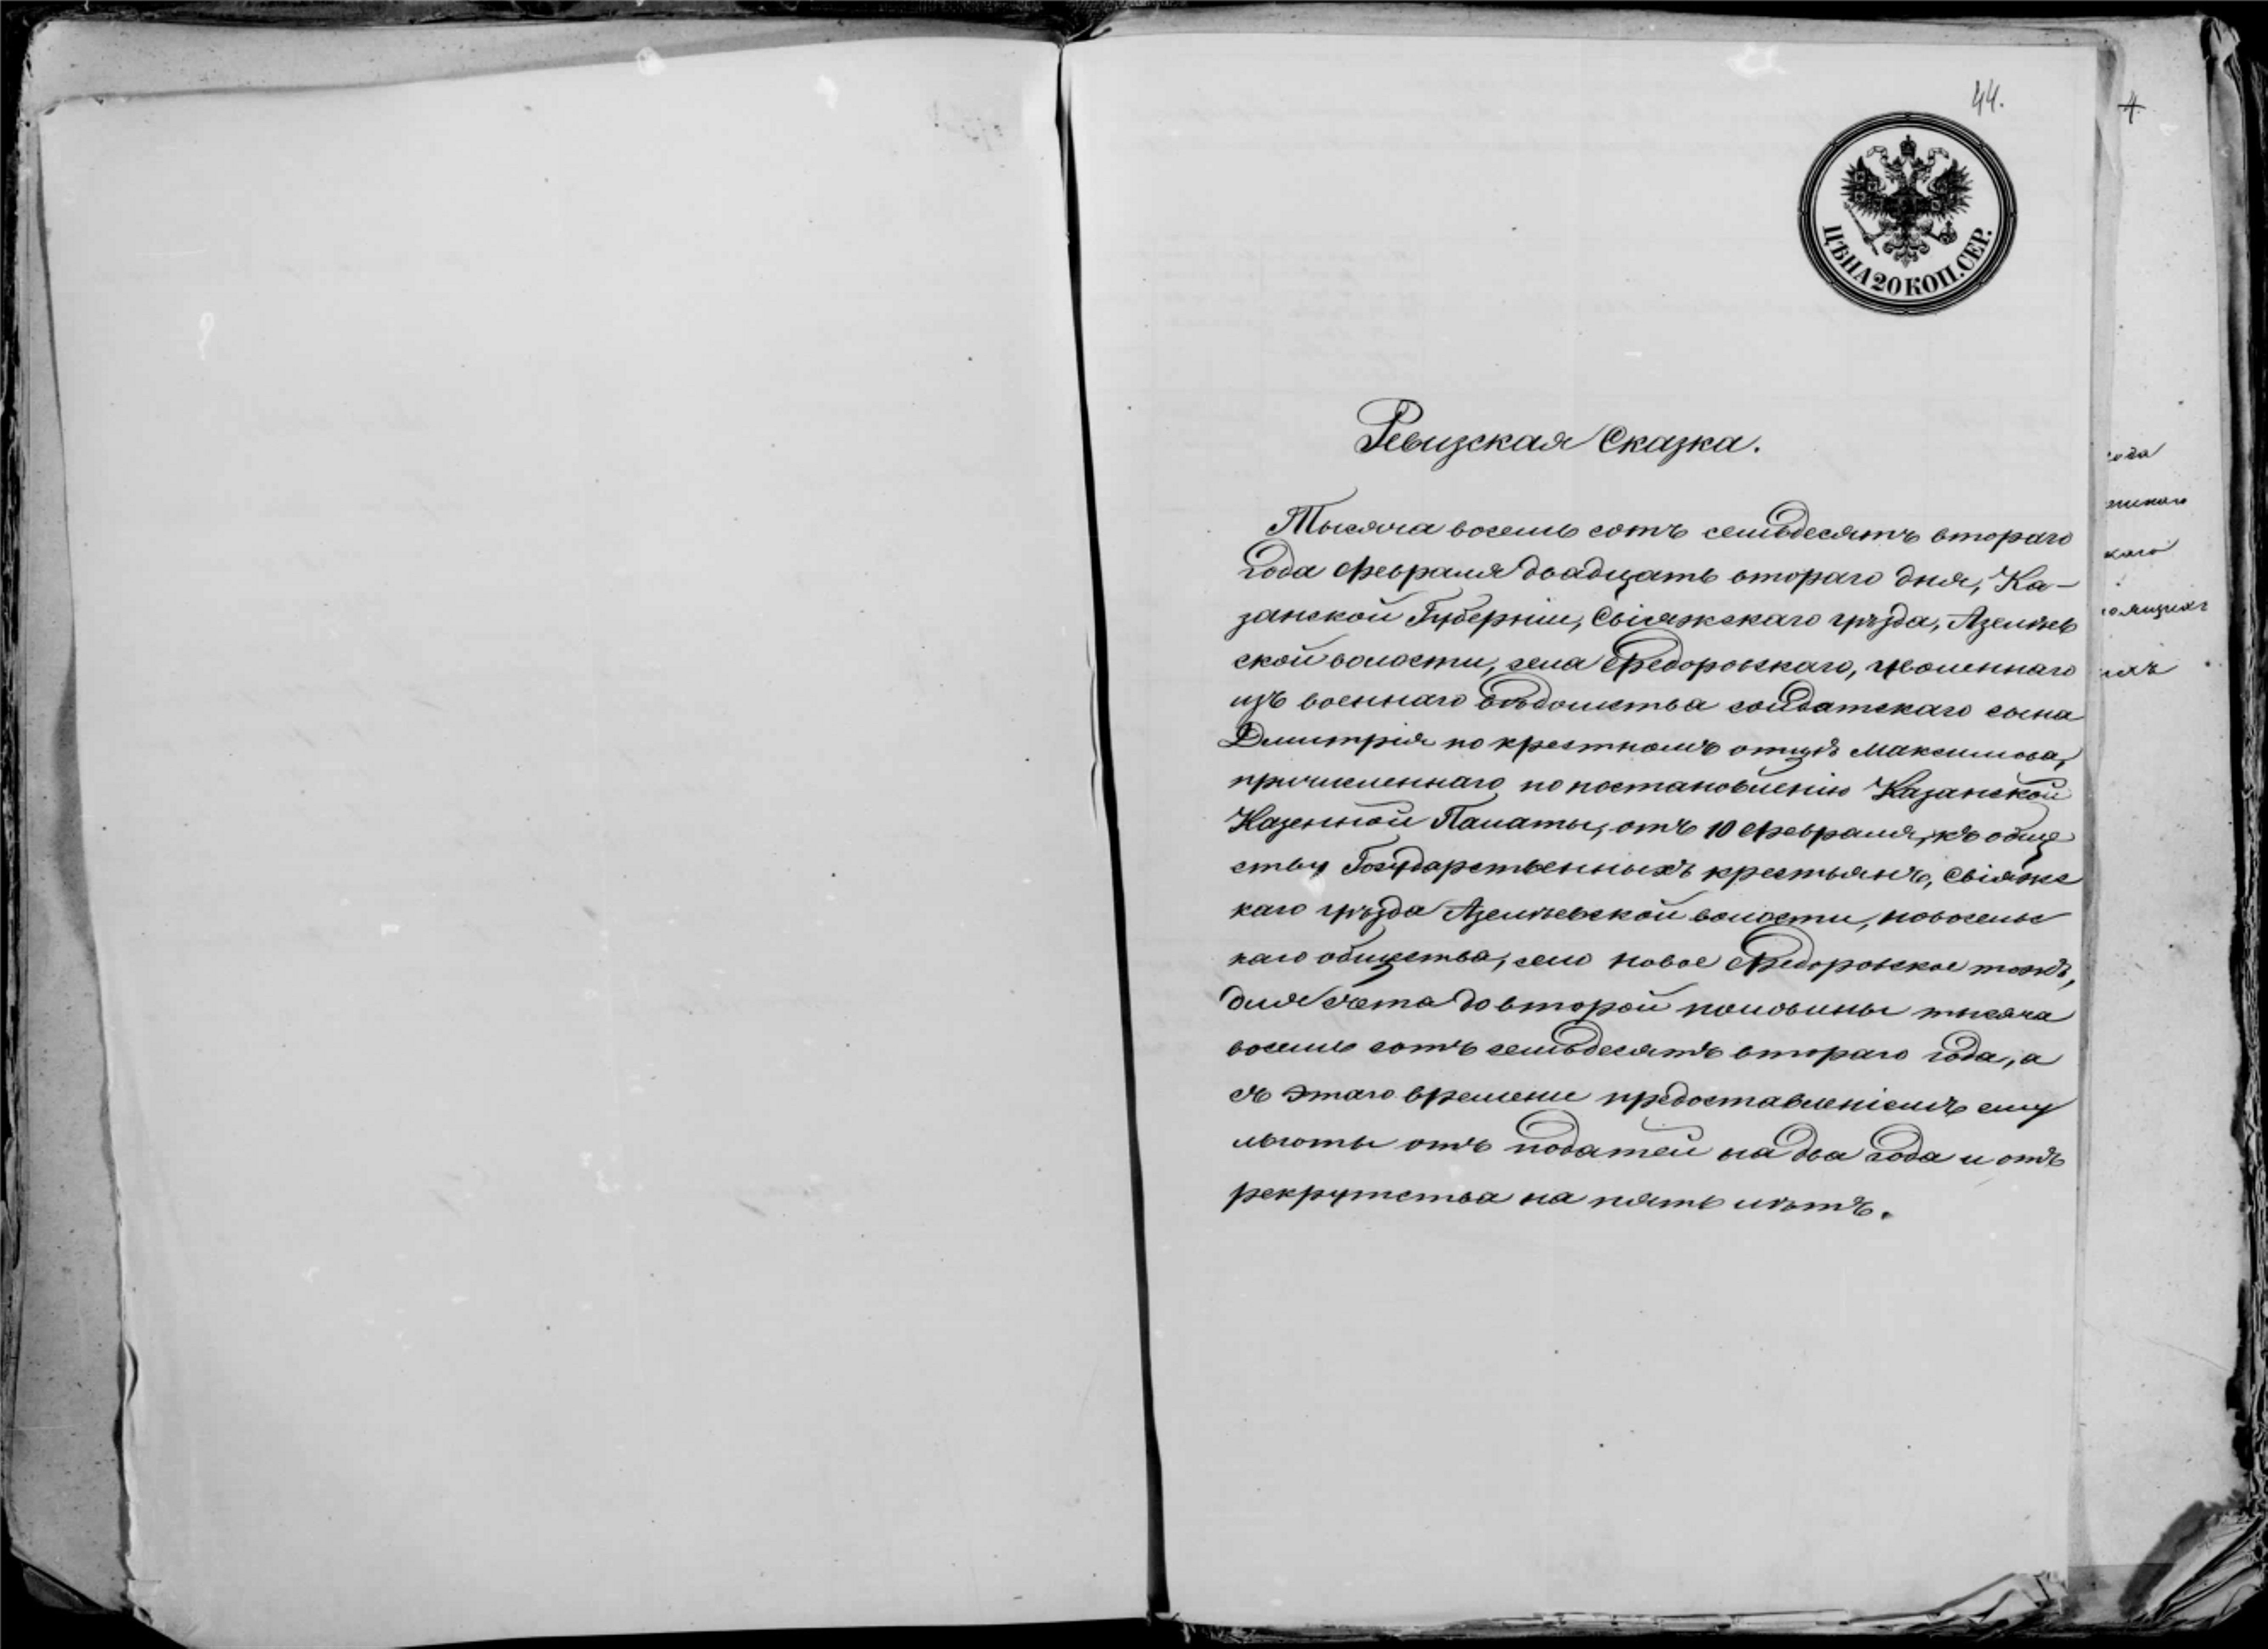 44.
4
ЦѢНА 20 КОП. СЕР.
Ревизская Сказка.
Тысяча восемь сотъ семьдесятъ втораго
года февраля двадцать втораго дня, Ка-
занской Губерніи, Свіяжскаго уѣзда, Азелеев
ской волости, села Федоровскаго, уволеннаго
изъ военнаго вѣдомства солдатскаго сына
Дмитрія по крестномъ отцѣ Максимова,
причисленнаго по постановленію Казанской
Казенной Палаты, отъ 10 февраля, къ обще
ству Государственныхъ крестьянъ, Свіяжс
каго уѣзда Азелеевской волости, новосельс
каго общества, село новое Федоровское тожъ,
для счета до второй половины тысяча
восемь сотъ семьдесятъ втораго года, а
съ этаго времени предоставленіемъ ему
льготы отъ податей на два года и отъ
рекрутства на пять лѣтъ.